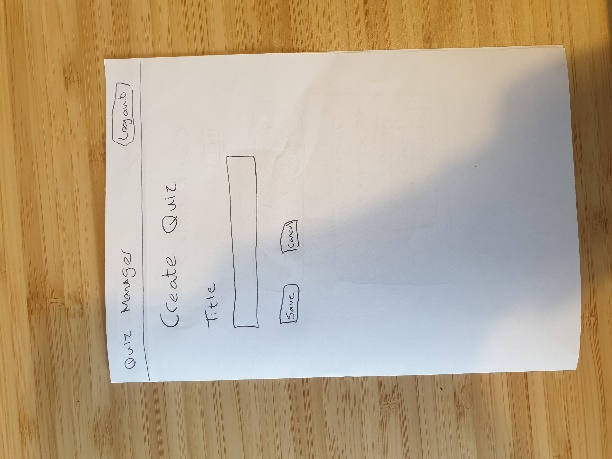 Quiz Manager Logout
Create Quiz
Title
Save Cancel